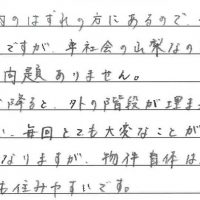 内のはずれの方にあるので、
ですが、車社会の山梨なの
問題ありません。
が降ると、外の階段が埋ま
い、毎回とても大変なことが
なりますが、物件自体は
も住みやすいです。